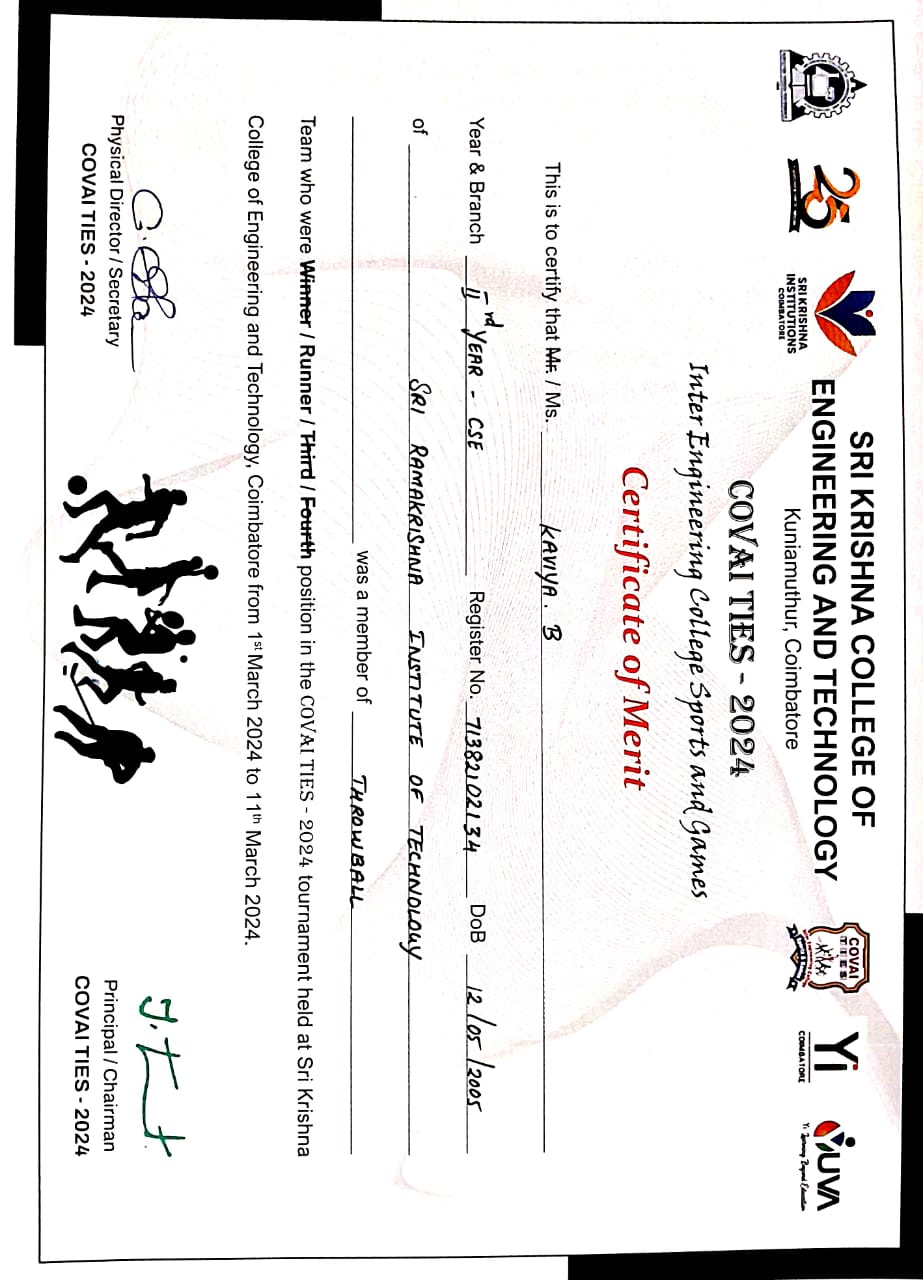 25
SRI KRISHNA
INSTITUTIONS
COIMBATORE
SRI KRISHNA COLLEGE OF
ENGINEERING AND TECHNOLOGY
Kuniamuthur, Coimbatore
COVAI
TIES
Yi
COIMBATORE
YUVA
COVAI TIES - 2024
Inter Engineering College Sports and Games
Certificate of Merit
This is to certify that Mr. / Ms. KAVIYA. B
Year & Branch IIrd YEAR - CSE Register No. 71382102134 DoB 12/05/2005
of SRI RAMAKRISHNA INSTITUTE OF TECHNOLOGY
was a member of THROWBALL
Team who were Winner / Runner / Third / Fourth position in the COVAI TIES - 2024 tournament held at Sri Krishna
College of Engineering and Technology, Coimbatore from 1st March 2024 to 11th March 2024.
Physical Director / Secretary
COVAI TIES - 2024
Principal / Chairman
COVAI TIES - 2024